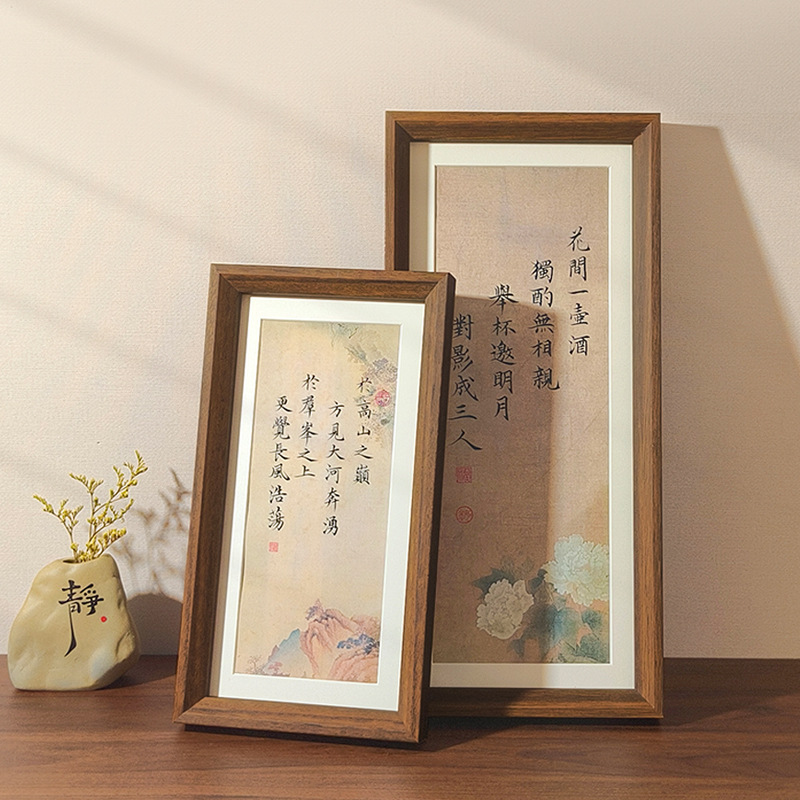 花間一壺酒
獨酌無相親
舉杯邀明月
對影成三人
於高山之巔
方見大河奔湧
於羣峯之上
更覺長風浩蕩
靜